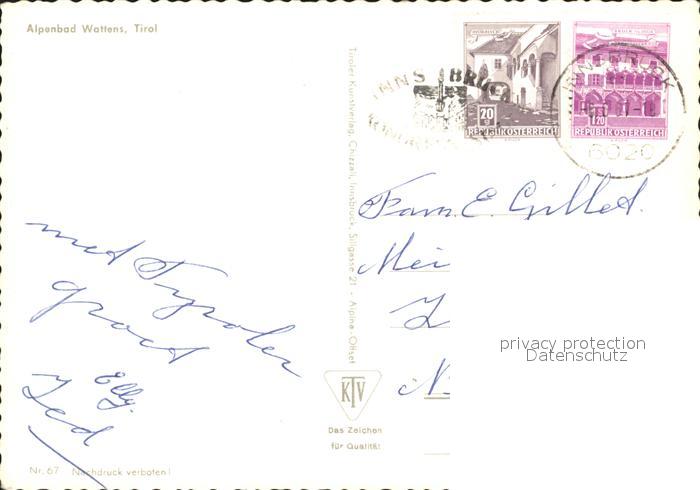 Alpenbad Wattens, Tirol
INNSBRUCK
20 g
REPUBLIK ÖSTERREICH
1.20
REPUBLIK ÖSTERREICH
INNSBRUCK
6020
Tiroler Kunstverlag, Chizzali, Innsbruck, Sillgasse 21 - Alpina-Offset
Fam. E. Gillet.
Mei
N
met Tyroler
groet
Elly.
KTV
Das Zeichen
für Qualität
Nr. 67 Nachdruck verboten!
privacy protection
Datenschutz